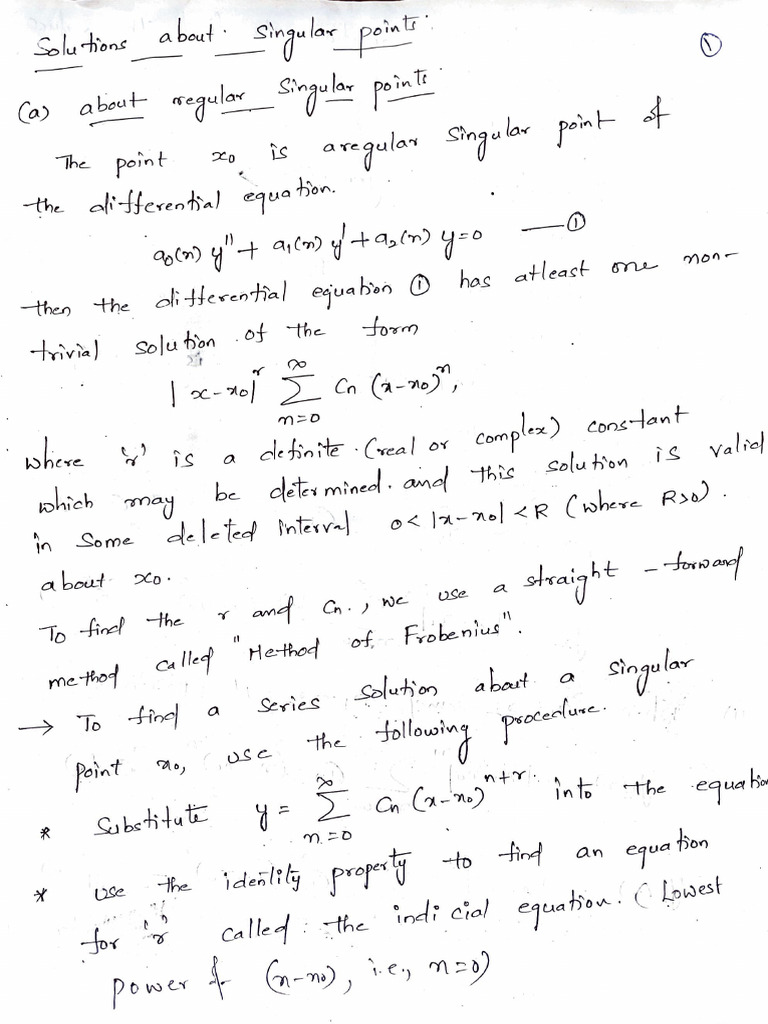 Solutions about singular points.
①
(a) about regular singular points.
The point x₀ is a regular singular point of
the differential equation.
a₀(x) y'' + a₁(x) y' + a₂(x) y = 0 —①
then the differential equation ① has atleast one non-
trivial solution of the form
|x-x₀|ʳ ∑_{n=0}^{∞} Cn (x-x₀)ⁿ,
where 'r' is a definite (real or complex) constant
which may be determined. and this solution is valid
in some deleted interval 0 < |x-x₀| < R (where R>0).
about x₀.
To find the r and Cn., we use a straight - forward
method called "Method of Frobenius".
→ To find a series solution about a singular
point x₀, use the following procedure.
* Substitute y = ∑_{n=0}^{∞} Cn (x-x₀)ⁿ⁺ʳ. into the equation
* use the identity property to find an equation
for 'r' called the indicial equation. (Lowest
power of (x-x₀), i.e., n=0)